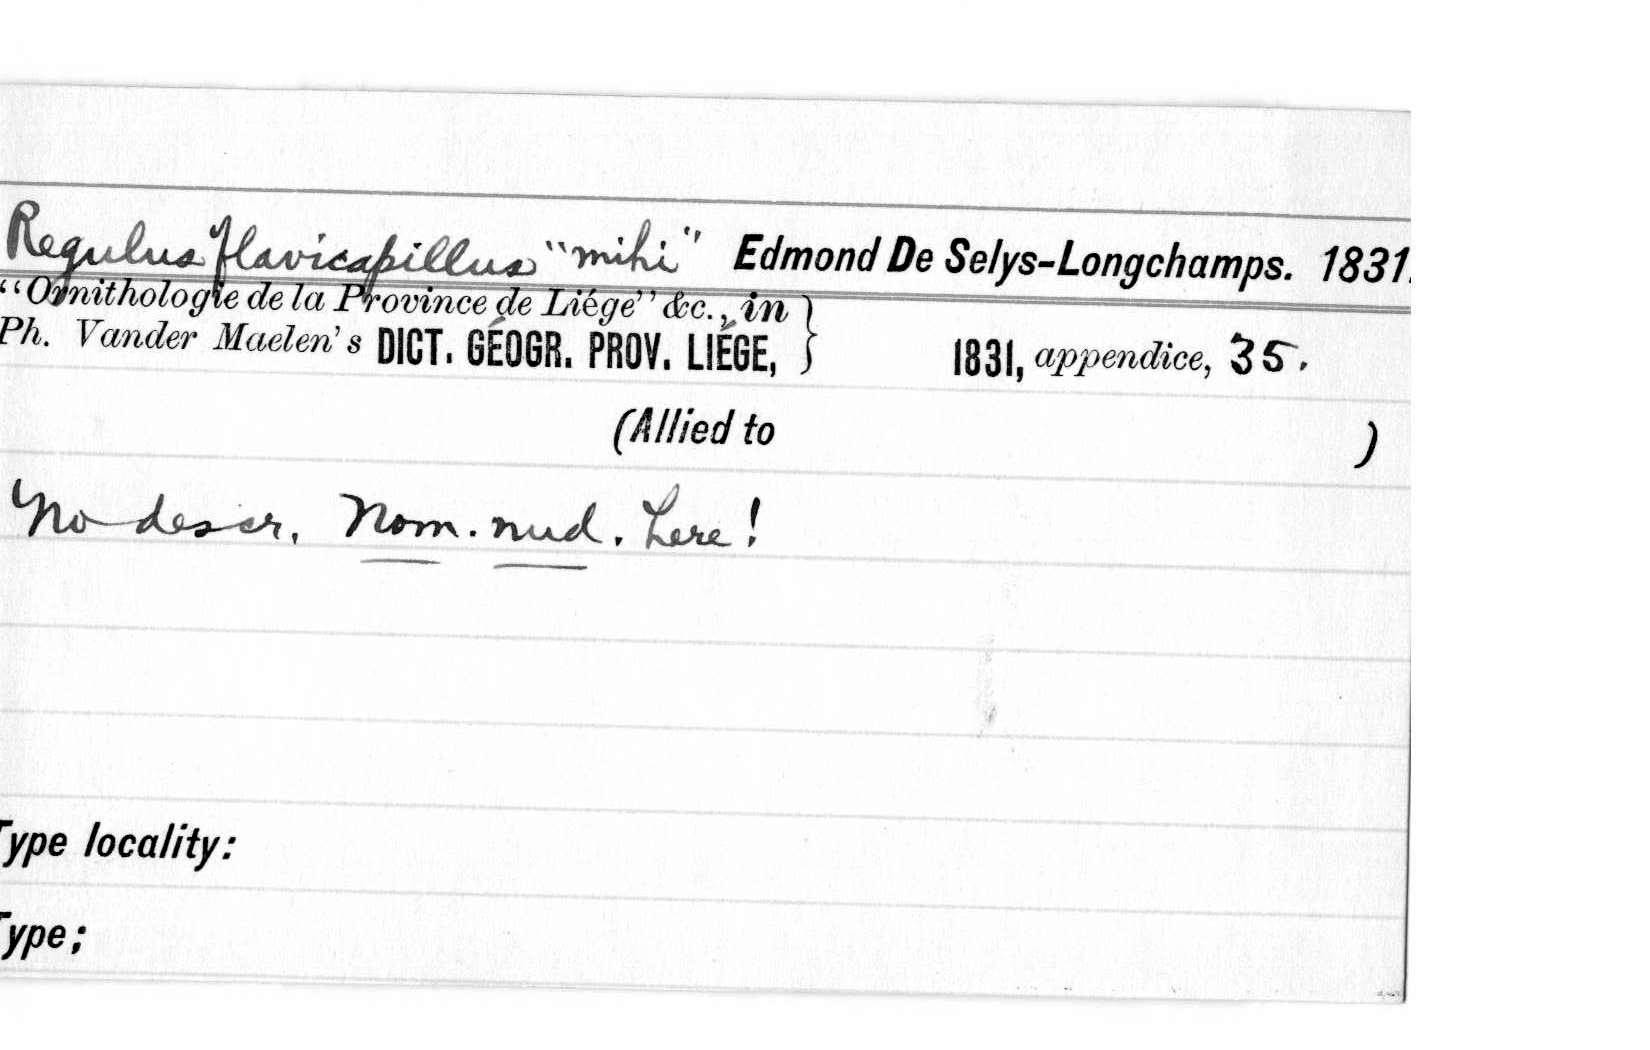 Regulus flavicapillus "mihi" Edmond De Selys-Longchamps. 1831.
"Ornithologie de la Province de Liége" &c., in }
Ph. Vander Maelen's DICT. GÉOGR. PROV. LIÉGE, } 1831, appendice, 35.
(Allied to )
No descr. Nom. nud. here!
Type locality:
Type;